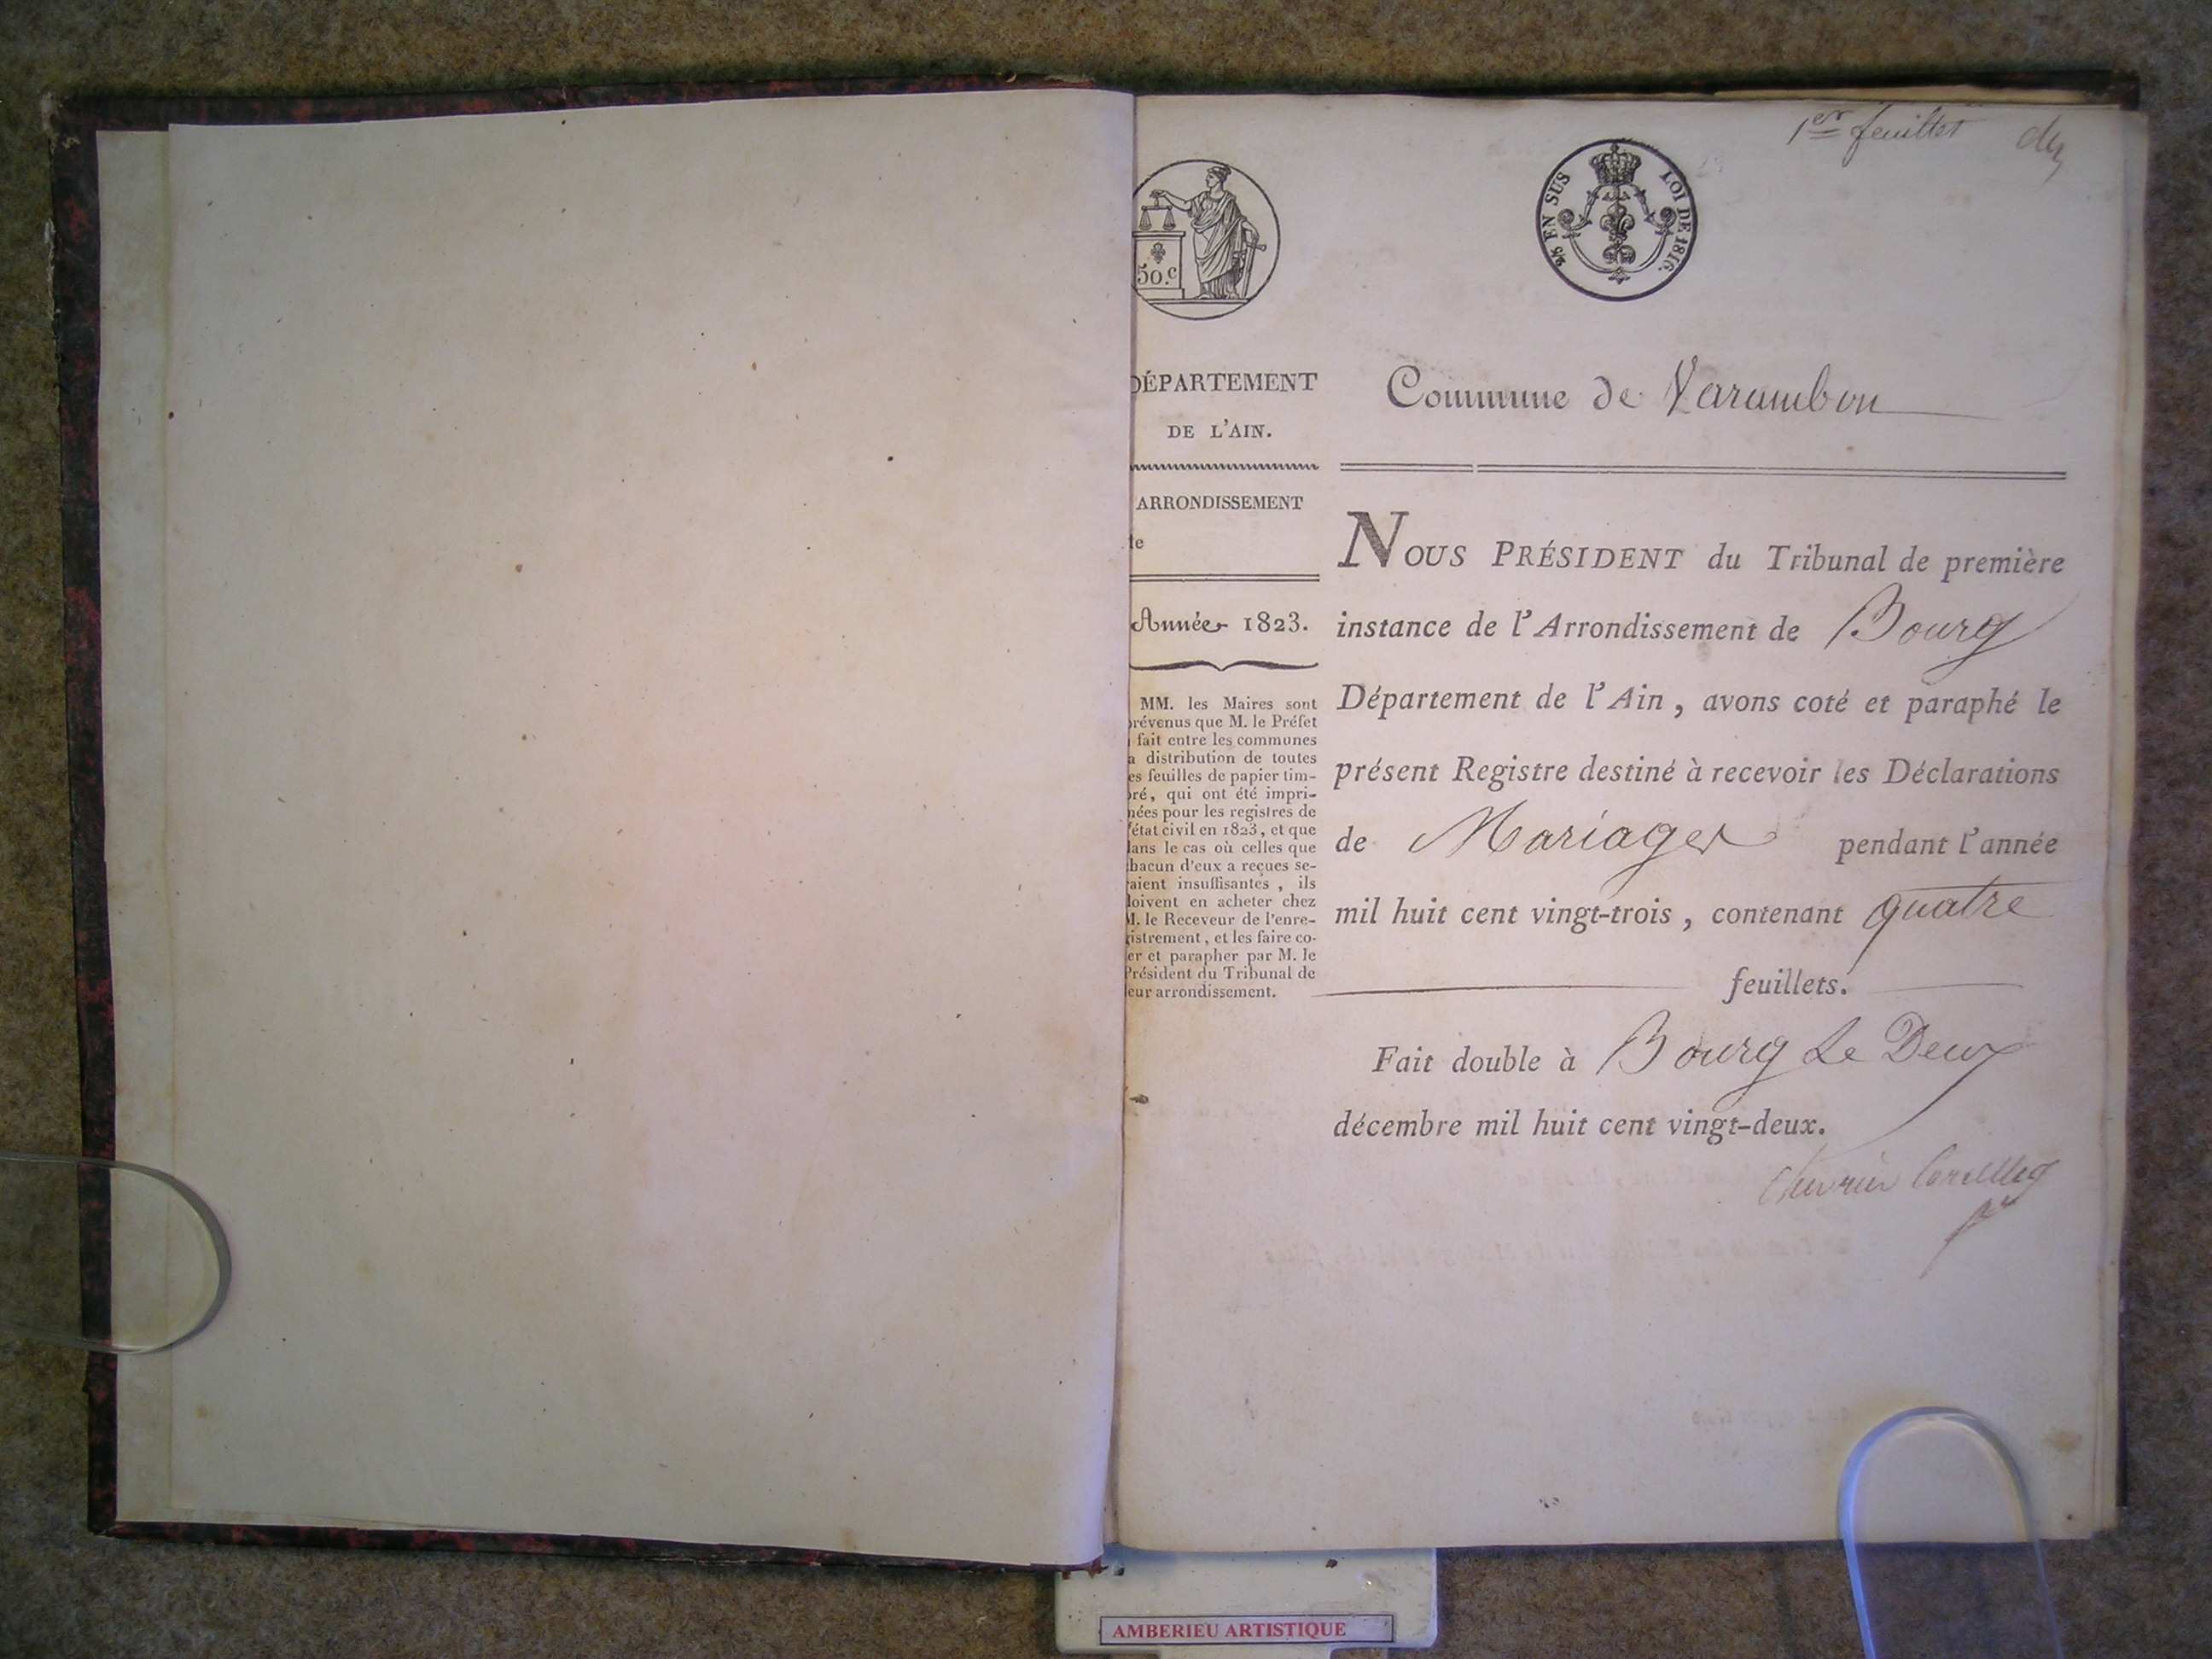 1er feuillet
50.c
25 EN SUS LOI DE 1816.
DÉPARTEMENT
DE L'AIN.
ARRONDISSEMENT
de
Année 1823.
MM. les Maires sont
prévenus que M. le Préfet
a fait entre les communes
la distribution de toutes
les feuilles de papier tim-
bré, qui ont été impri-
mées pour les registres de
l'état civil en 1823, et que
dans le cas où celles que
chacun d'eux a reçues se-
raient insuffisantes, ils
doivent en acheter chez
M. le Receveur de l'enre-
gistrement, et les faire co-
ter et parapher par M. le
Président du Tribunal de
leur arrondissement.
Commune de Varambon
NOUS PRÉSIDENT du Tribunal de première
instance de l'Arrondissement de Bourg
Département de l'Ain, avons coté et paraphé le
présent Registre destiné à recevoir les Déclarations
de Mariages pendant l'année
mil huit cent vingt-trois, contenant quatre
feuillets.
Fait double à Bourg Le Deux
décembre mil huit cent vingt-deux.
AMBERIEU ARTISTIQUE